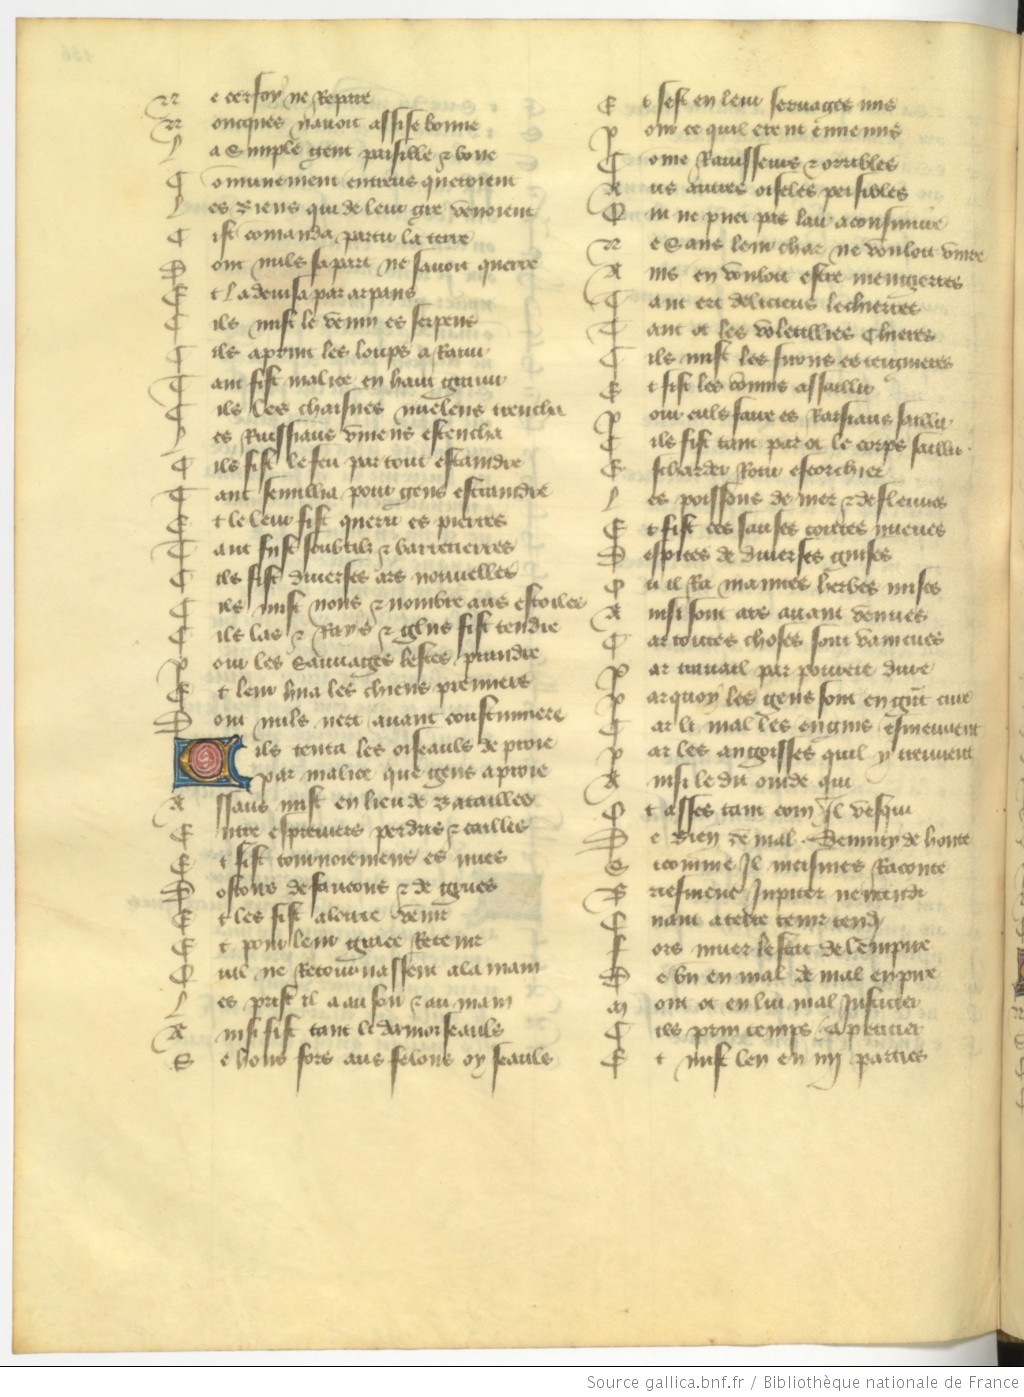 N e cerfoy ne repaire
N oncques navoit assise bonne
L a simple gent paisille & bone
C omunement entreus queroient
L es biens qui de leur gre venoient
C ist comanda partir la terre
D ont nuls sa part ne savoit querre
E t la devisa par arpans
C ils mist le venin es serpens
C ils aprint les loups a ravir
T ant fist malice en haut gravir
C ils les chaisnes trencha
L es ruissiaus vinens estencha
C ils fist le feu par tout estaindre
T ant semillia pour gens estraindre
E t le leur fist querir es pierres
T ant fust soubtilz & barreterres
C ils fist diverses ars nouvelles
C ils mist nons & nombre aus estoiles
C ils las & rays & glus fist tendre
P our les sauvages bestes prandre
E t leur hua les chiens premiers
D ont nuls nert avant coustumiere
C ils tenta les oiseauls de proie
par malice que gens aproie
A ssaus mist en lieu de batailles
E ntre espreviers perdris & cailles
E t fist tournoiemens es nues
D ostours de faucons & de grues
E t les fist aloirre venir
E t pour leur grace retenir
Q uil ne retournassent a la main
L es prist il a au soir & au main
A insi fist tant li damoiseauls
S e hons fors aus felons oyseauls
E t sest en leur servages mis
P our ce quil erent ennemis
C ome ravisseurs & orribles
A us autres oiseles peisibles
Q ui ne puet pas lair aconsuivre
N e sans leur char ne vouloit vivre
A ins en vouloit estre mengierres
T ant ert delicieus lechierres
T ant ot les voletillies chieres
C ils mist les furons es teignieres
E t fist les connins assaillir
P our euls faire es rarsiaus saillir
C ils fist tant par ot le corps saillir
E scharder rotir escorchier
L es poissons de mer & de flenues
E t fist ces sauses toutes nueves
D espices de diverses guises
O u il ra maintes herbes mises
A insi sont ars avant venues
C ar toutes choses sont vaincues
P ar travail par povrete dure
P arquoy les gens sont en grant cure
C ar li mal les engins esmeuvent
P ar les angoisses quil y treuvent
A insi le dit ovide qui
O t asses tant com il vesqui
D e bien de mal Demnity de honte
S icomme il meismes raconte
B riefment Jupiter nentendi
C nant a terre tenir tendi
F ors muer lestat de lempire
D e bn en mal de mal en pire
M oult ot en lui mal justicier
C iles prin temps apeticier
E t mist len en iiij parties
Source gallica.bnf.fr / Bibliothèque nationale de France